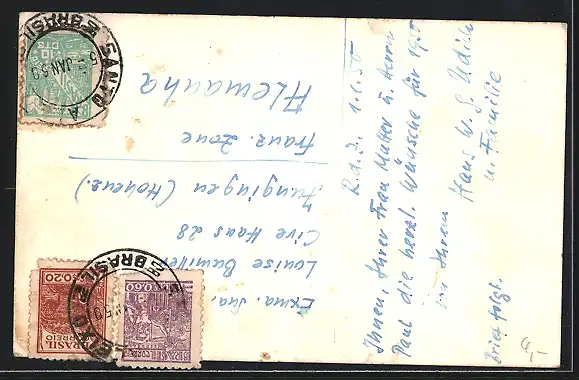 R.d.J. 1.1.50
Ihnen, Ihrer Frau Mutter u. Herrn
Paul die herzl. Wünsche für 1950
von Ihrem Hans W. G.
u. Familie
Brief folgt.
Exma. Sra.
Louise
Cive Haas 28
Jungingen (Hohenz.)
Franz. Zone
Alemanha
BRASIL
5-JAN 50
SANTO A
10
CTS
BRASIL
JAN 50
0,20
BRASIL
CORREIO
0,60
BRASIL CORREIO
4,-